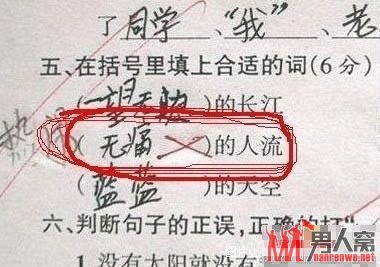 了同学、“我”、老
五、在括号里填上合适的词(6分)
(一望无)的长江
(无痛)的人流
(蓝蓝)的天空
六、判断句子的正误,正确的打"
1.没有太阳就没有
男人窝
nanrenwo.net